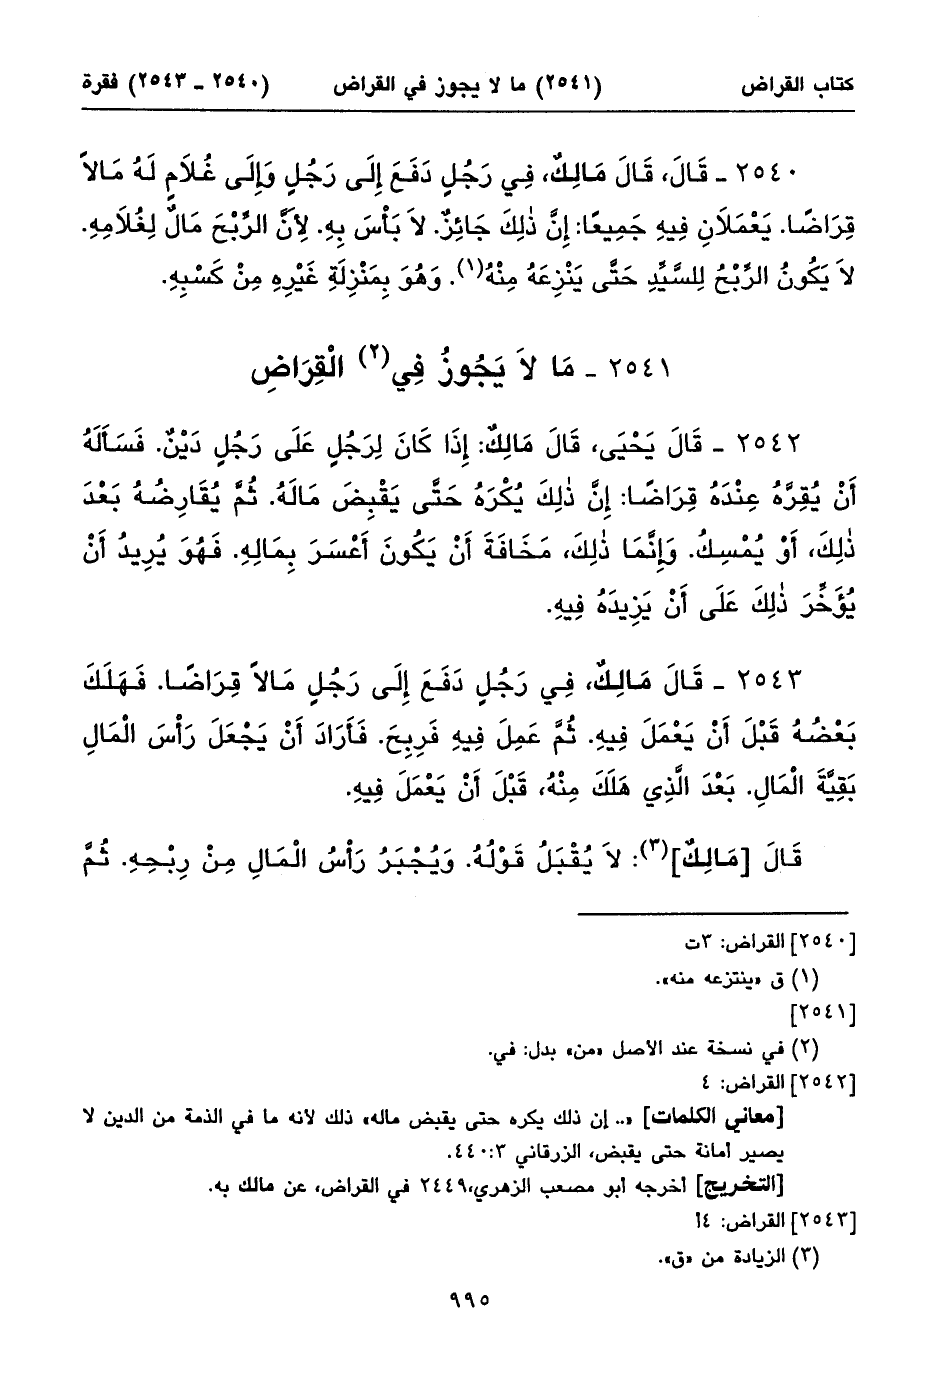 كتاب القراض (٢٥٤١) ما لا يجوز في القراض (٢٥٤٠ ـ ٢٥٤٣) فقرة
٢٥٤٠ ـ قَالَ، قَالَ مَالِكٌ، فِي رَجُلٍ دَفَعَ إِلَى رَجُلٍ وَإِلَى غُلَامٍ لَهُ مَالاً
قِرَاضًا. يَعْمَلَانِ فِيهِ جَمِيعًا: إِنَّ ذٰلِكَ جَائِزٌ. لاَ بَأْسَ بِهِ. لِأَنَّ الرِّبْحَ مَالٌ لِغُلَامِهِ.
لاَ يَكُونُ الرِّبْحُ لِلسَّيِّدِ حَتَّى يَنْزِعَهُ مِنْهُ(١). وَهُوَ بِمَنْزِلَةِ غَيْرِهِ مِنْ كَسْبِهِ.
٢٥٤١ ـ مَا لاَ يَجُوزُ فِي(٢) الْقِرَاضِ
٢٥٤٢ ـ قَالَ يَحْيَى، قَالَ مَالِكٌ: إِذَا كَانَ لِرَجُلٍ عَلَى رَجُلٍ دَيْنٌ. فَسَأَلَهُ
أَنْ يُقِرَّهُ عِنْدَهُ قِرَاضًا: إِنَّ ذٰلِكَ يُكْرَهُ حَتَّى يَقْبِضَ مَالَهُ. ثُمَّ يُقَارِضُهُ بَعْدَ
ذٰلِكَ، أَوْ يُمْسِكُ. وَإِنَّمَا ذٰلِكَ، مَخَافَةَ أَنْ يَكُونَ أَعْسَرَ بِمَالِهِ. فَهُوَ يُرِيدُ أَنْ
يُؤَخِّرَ ذٰلِكَ عَلَى أَنْ يَزِيدَهُ فِيهِ.
٢٥٤٣ ـ قَالَ مَالِكٌ، فِي رَجُلٍ دَفَعَ إِلَى رَجُلٍ مَالاً قِرَاضًا. فَهَلَكَ
بَعْضُهُ قَبْلَ أَنْ يَعْمَلَ فِيهِ. ثُمَّ عَمِلَ فِيهِ فَرِبِحَ. فَأَرَادَ أَنْ يَجْعَلَ رَأْسَ الْمَالِ
بَقِيَّةَ الْمَالِ. بَعْدَ الَّذِي هَلَكَ مِنْهُ، قَبْلَ أَنْ يَعْمَلَ فِيهِ.
قَالَ [مَالِكٌ](٣): لاَ يُقْبَلُ قَوْلُهُ. وَيُجْبَرُ رَأْسُ الْمَالِ مِنْ رِبْحِهِ. ثُمَّ
[٢٥٤٠] القراض: ٣ت
(١) ق «ينتزعه منه».
[٢٥٤١]
(٢) في نسخة عند الأصل «من» بدل: في.
[٢٥٤٢] القراض: ٤
[معاني الكلمات] «.. إن ذلك يكره حتى يقبض ماله» ذلك لأنه ما في الذمة من الدين لا
يصير أمانة حتى يقبض، الزرقاني ٣:٤٤٠.
[التخريج] أخرجه أبو مصعب الزهري،٢٤٤٩ في القراض، عن مالك به.
[٢٥٤٣] القراض: ٤أ
(٣) الزيادة من «ق».
٩٩٥